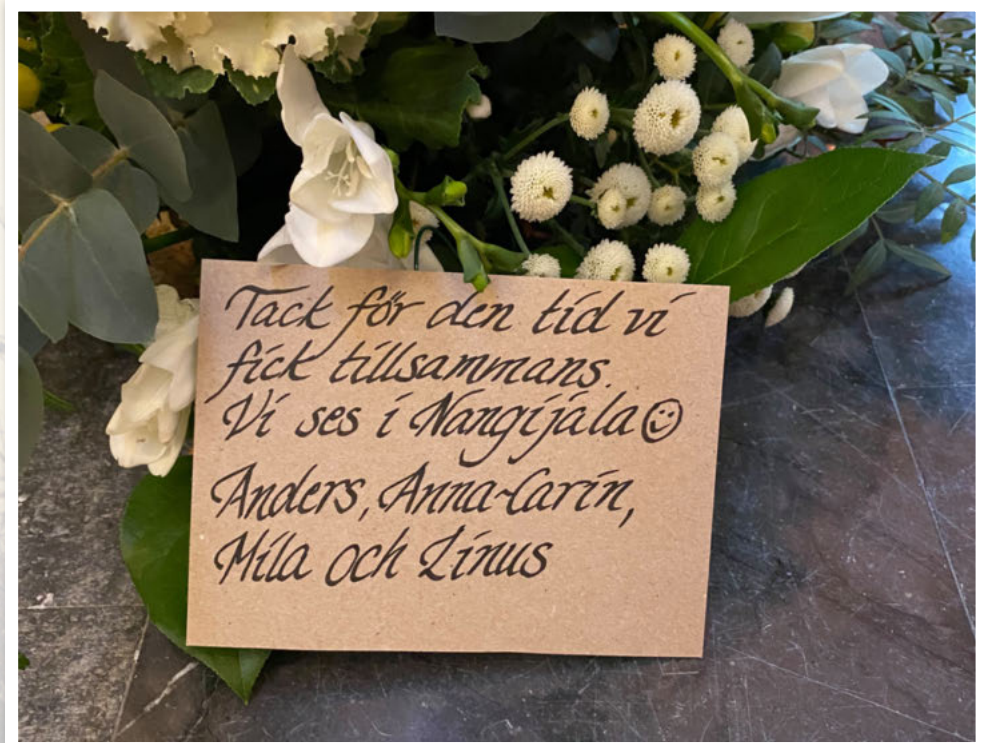 Tack för den tid vi
fick tillsammans.
Vi ses i Nangijala☺
Anders, Anna-Carin,
Mila och Linus